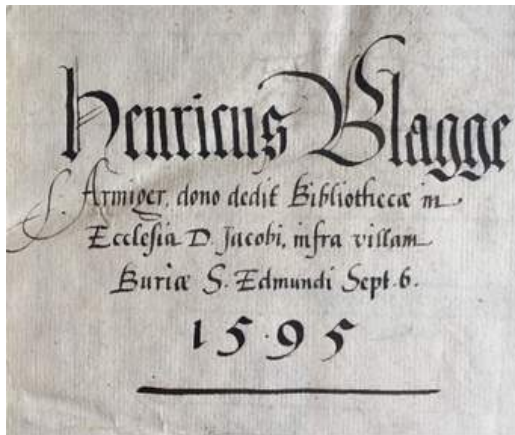 Henricus Blagge
Armiger, dono dedit Bibliothecæ in
Ecclesia D. Jacobi, infra villam
Buriæ S. Edmundi Sept. 6.
1595